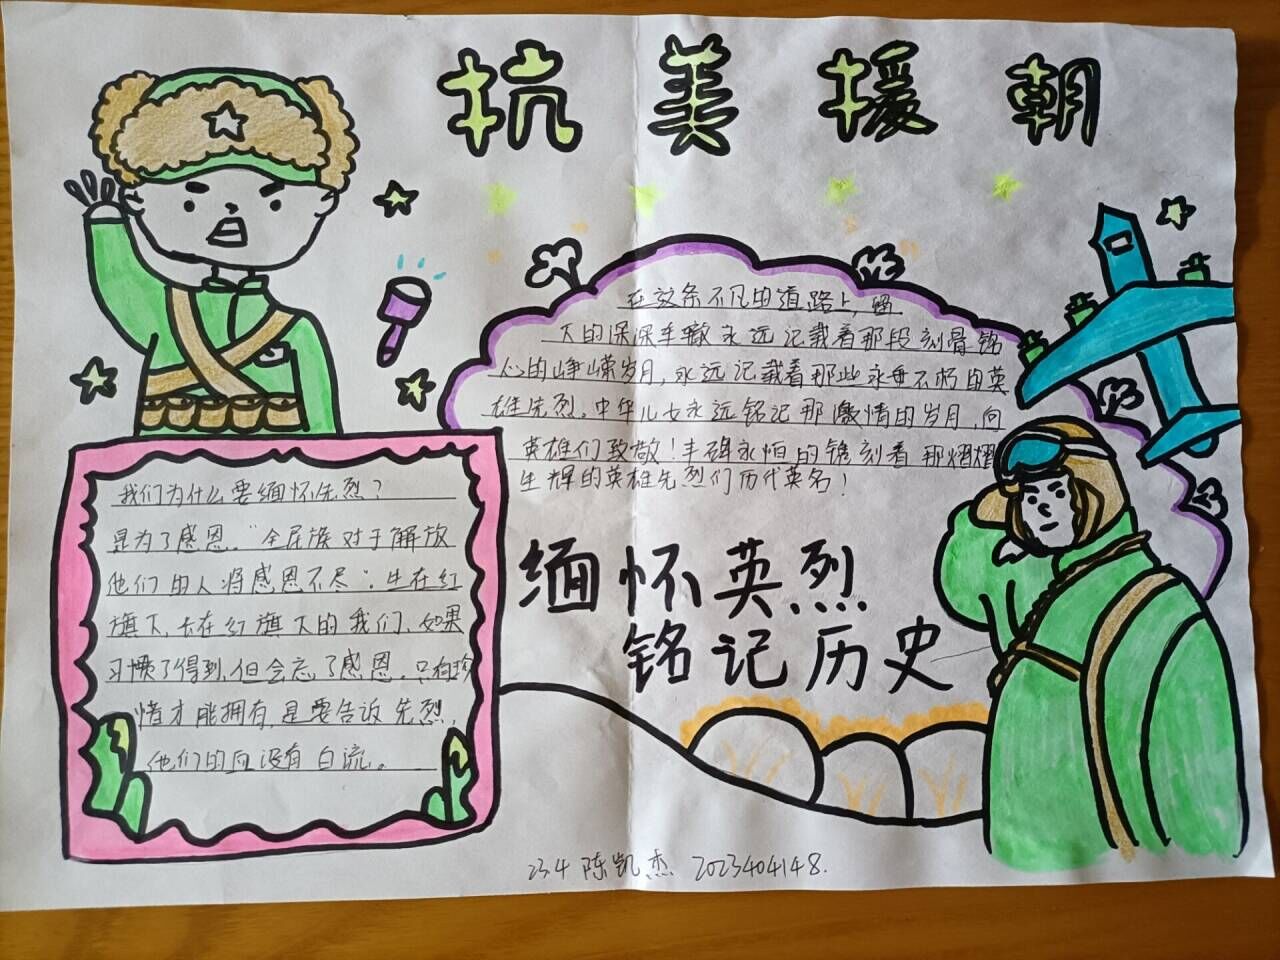 抗美援朝
在这条不凡的道路上,留
下的深深车辙永远记载着那段刻骨铭
心的峥嵘岁月,永远记载着那些永垂不朽的英
雄先烈,中华儿女永远铭记那激情的岁月,向
英雄们致敬!丰碑永怕的镌刻着那熠熠
生辉的英雄先烈们历代英名!
我们为什么要缅怀先烈?
是为了感恩。"全民族对于解放
他们的人将感恩不尽"。生在红
旗下,长在红旗下的我们,如果
习惯了得到,但会忘了感恩。只有珍
惜才能拥有,是要告诉先烈,
他们的血没有白流。
缅怀英烈
铭记历史
23.4 陈凯杰 2023404148.